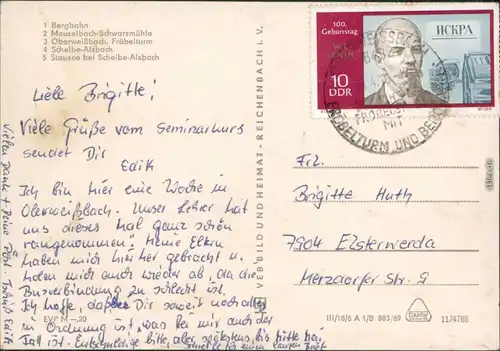 1 Bergbahn
2 Meuselbach-Schwarzmühle
3 Oberweißbach, Fröbelturm
4 Scheibe-Alsbach
5 Stausee bei Scheibe-Alsbach
Liebe Brigitte!
Viele Grüße vom Seminarkurs
sendet Dir
Edith
Ich bin hier eine Woche in
Oberweißbach. Unser Lehrer hat
uns dieses hal ganz schön
rangenommen. Meine Eltern
haben mich hier her gebracht u.
holen mich auch wieder ab, da die
Busverbindung zu schlecht ist.
Ich hoffe, daß bei Dir soweit noch alles
in Ordnung ist, was bei mir auch der
Fall ist. Entschuldige bitte, aber spätestens bis
Schreibe Dir einen langen Brief
Vielen Dank f. Deine Post.
EVP M -,20
VEB BILD UND HEIMAT · REICHENBACH i. V.
100.
Geburtstag
W. I.
LENIN
ИСКРА
10
DDR
FRÖBELTURM UND BERG
MIT
Frl.
Brigitte Huth
7904 Elsterwerda
Merzdorfer Str. 2
III/18/6 A 1/B 883/69
11/4788